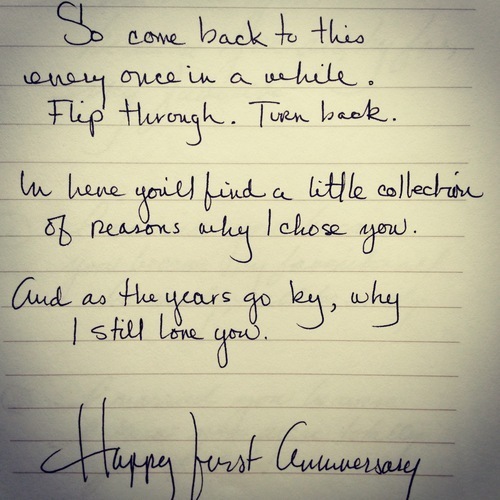 So come back to this
every once in a while.
Flip through. Turn back.
In here you'll find a little collection
of reasons why I chose you.
And as the years go by, why
I still love you.
Happy first Anniversary